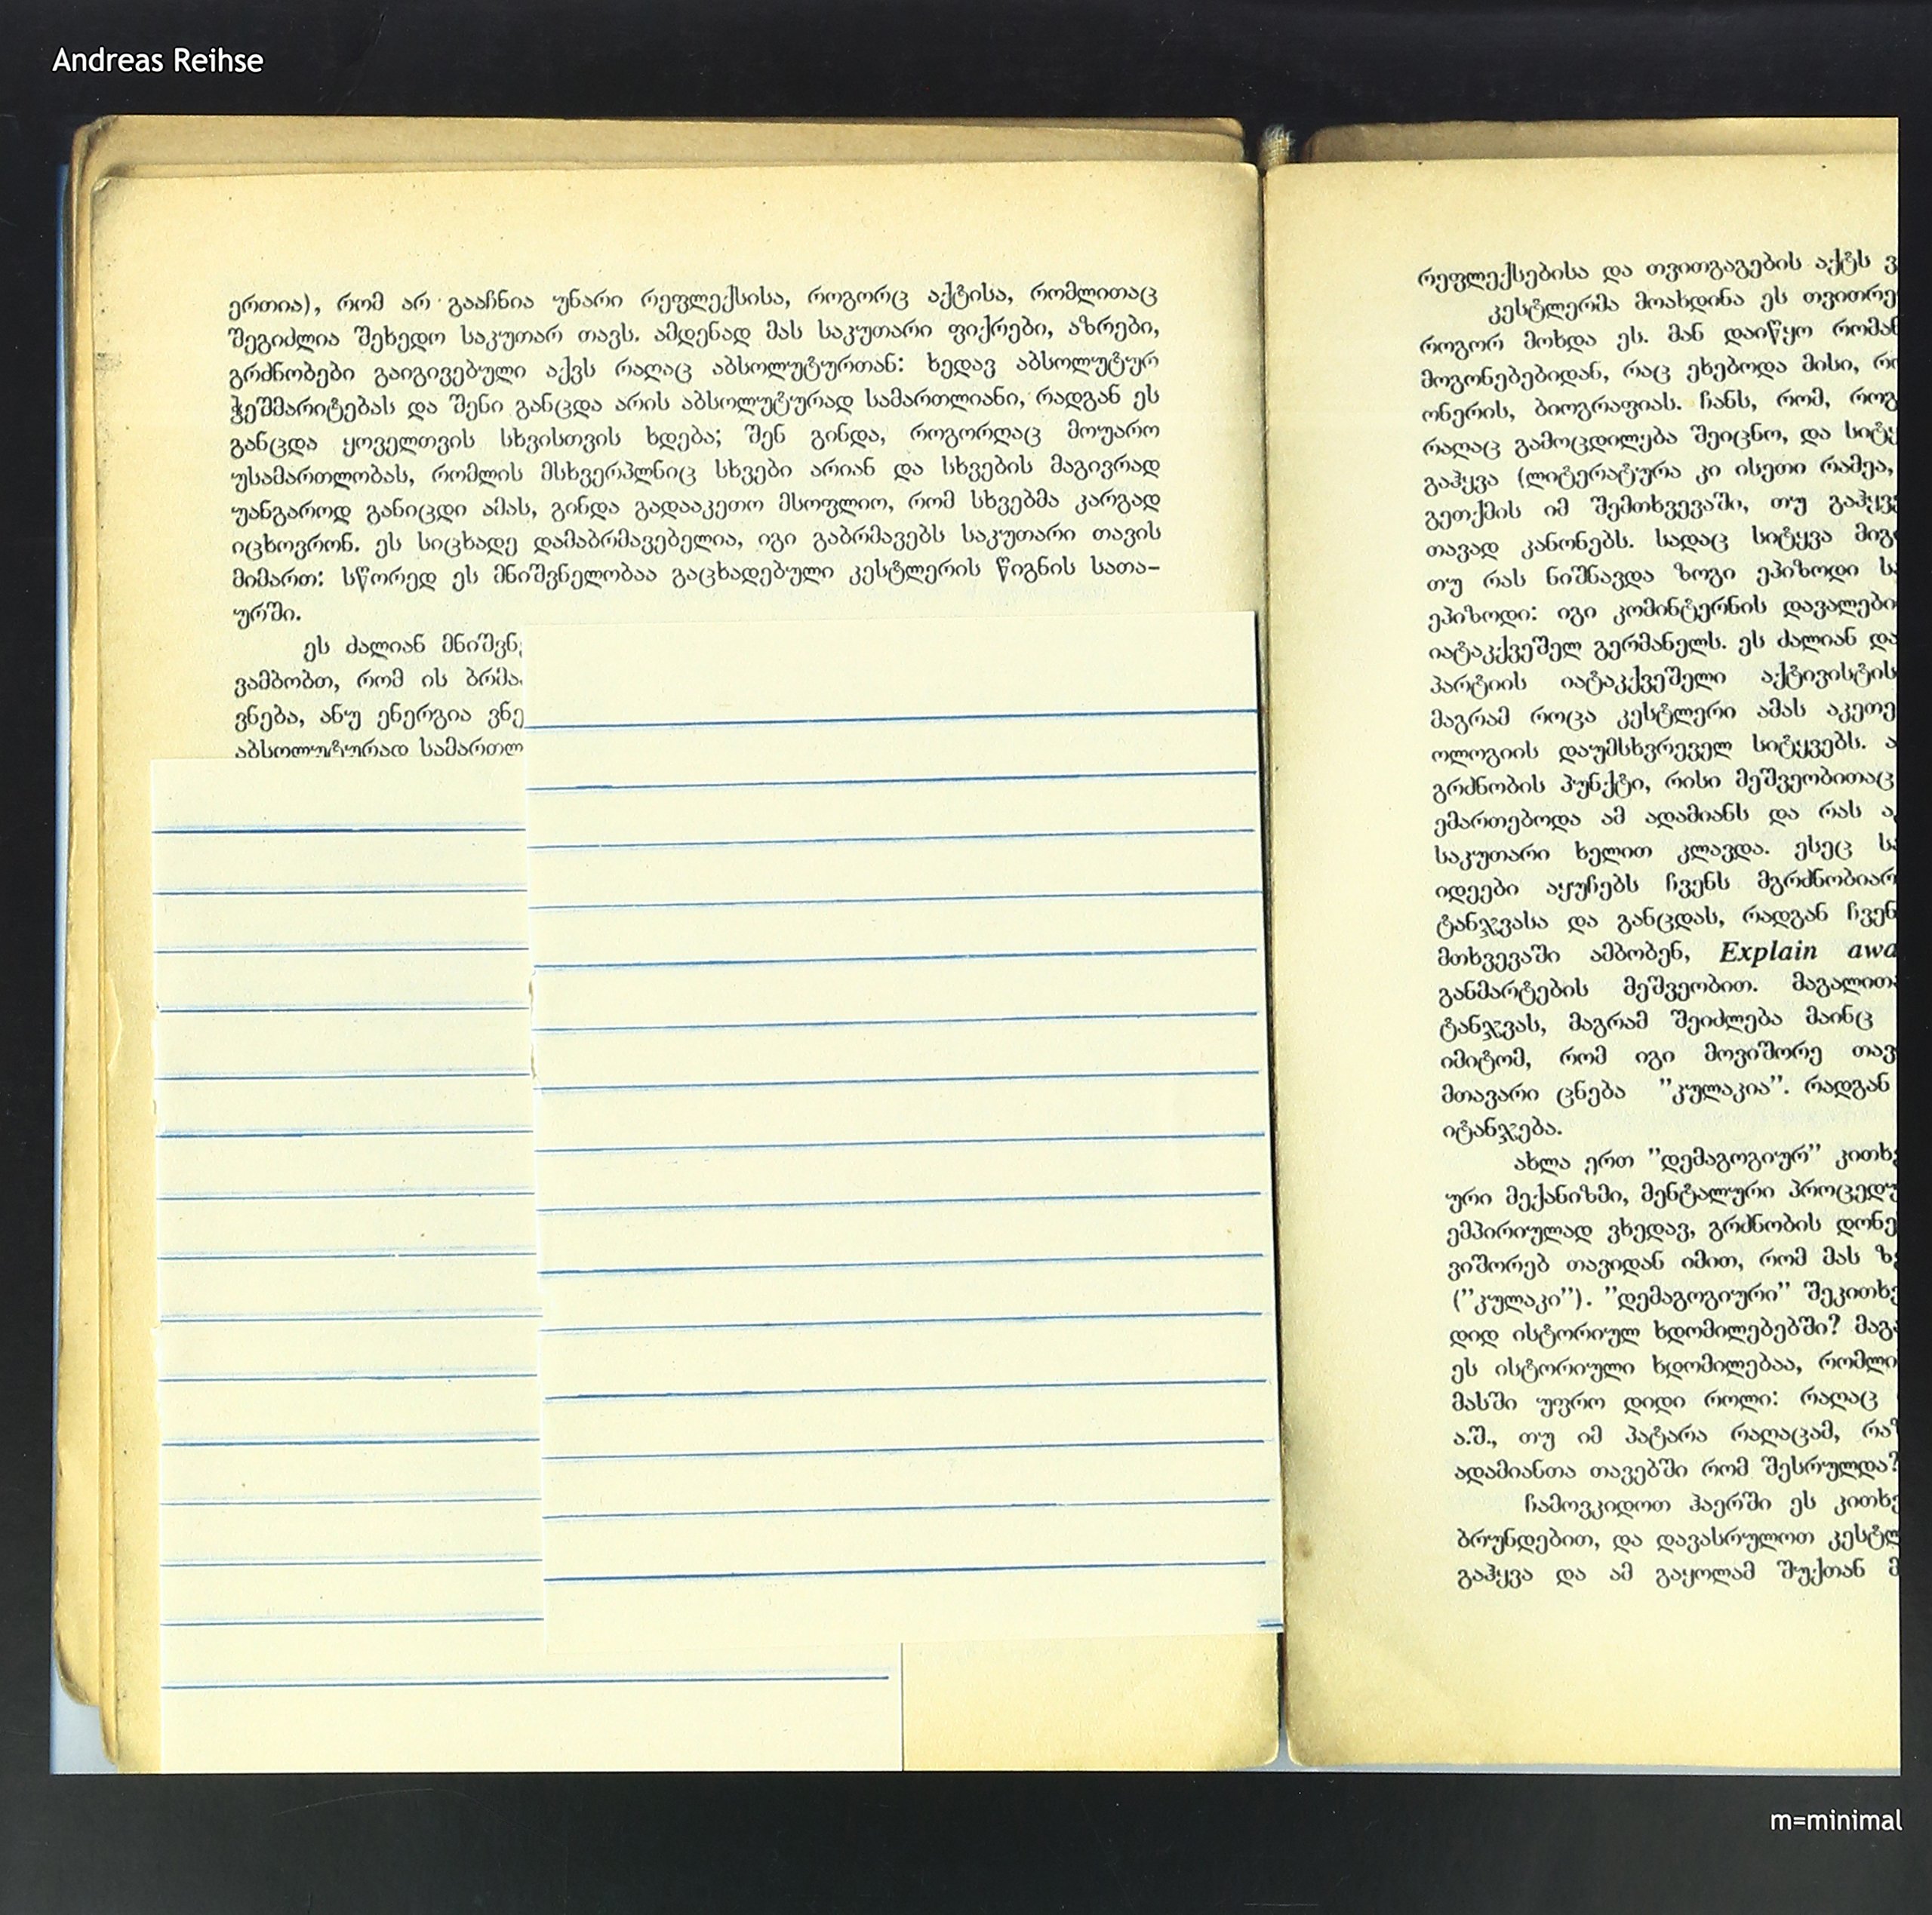 Andreas Reihse
ერთია), რომ არ გააჩნია უნარი რეფლექსისა, როგორც აქტისა, რომლითაც
შეგიძლია შეხედო საკუთარ თავს. ამდენად მას საკუთარი ფიქრები, აზრები,
გრძნობები გაიგივებული აქვს რაღაც აბსოლუტურთან: ხედავ აბსოლუტურ
ჭეშმარიტებას და შენი განცდა არის აბსოლუტურად სამართლიანი, რადგან ეს
განცდა ყოველთვის სხვისთვის ხდება; შენ გინდა, როგორღაც მოუარო
უსამართლობას, რომლის მსხვერპლნიც სხვები არიან და სხვების მაგივრად
უანგაროდ განიცდი ამას, გინდა გადააკეთო მსოფლიო, რომ სხვებმა კარგად
იცხოვრონ. ეს სიცხადე დამაბრმავებელია, იგი გაბრმავებს საკუთარი თავის
მიმართ: სწორედ ეს მნიშვნელობაა გაცხადებული კესტლერის წიგნის სათა-
ურში.
ეს ძალიან მნიშვნ
ვამბობთ, რომ ის ბრმა
ვნება, ანუ ენერგია ვნე
აბსოლუტურად სამართლ
რეფლექსებისა და თვითგაგების აქტს ვ
კესტლერმა მოახდინა ეს თვითრე
როგორ მოხდა ეს. მან დაიწყო რომან
მოგონებებიდან, რაც ეხებოდა მისი, რო
ონერის, ბიოგრაფიას. ჩანს, რომ, როგ
რაღაც გამოცდილება შეიცნო, და სიტყ
გაჰყვა (ლიტერატურა კი ისეთი რამეა,
გეთქმის იმ შემთხვევაში, თუ გაჰყვე
თავად კანონებს. სადაც სიტყვა მიგ
თუ რას ნიშნავდა ზოგი ეპიზოდი ს
ეპიზოდი: იგი კომინტერნის დავალები
იატაკქვეშელ გერმანელს. ეს ძალიან და
პარტიის იატაკქვეშელი აქტივისტის
მაგრამ როცა კესტლერი ამას აკეთე
ოლოგიის დაუმსხვრეველ სიტყვებს. ა
გრძნობის პუნქტი, რისი მეშვეობითაც
ემართებოდა ამ ადამიანს და რას ა
საკუთარი ხელით კლავდა. ესეც ს
იდეები აყუჩებს ჩვენს მგრძნობიარ
ტანჯვასა და განცდას, რადგან ჩვენ
მთხვევაში ამბობენ, Explain awa
განმარტების მეშვეობით. მაგალით
ტანჯვას, მაგრამ შეიძლება მაინც
იმიტომ, რომ იგი მოვიშორე თავ
მთავარი ცნება "კულაკია". რადგან
იტანჯება.
ახლა ერთ "დემაგოგიურ" კითხვ
ური მექანიზმი, მენტალური პროცედუ
ემპირიულად ვხედავ, გრძნობის დონე
ვიშორებ თავიდან იმით, რომ მას ზ
("კულაკი"). "დემაგოგიური" შეკითხვ
დიდ ისტორიულ ხდომილებებში? მაგ
ეს ისტორიული ხდომილებაა, რომლი
მასში უფრო დიდი როლი: რაღაც
ა.შ., თუ იმ პატარა რაღაცამ, რა
ადამიანთა თავებში რომ შესრულდა?
ჩამოვკიდოთ ჰაერში ეს კითხვ
ბრუნდებით, და დავასრულოთ კესტლ
გაჰყვა და ამ გაყოლამ შუქთან მ
m=minimal